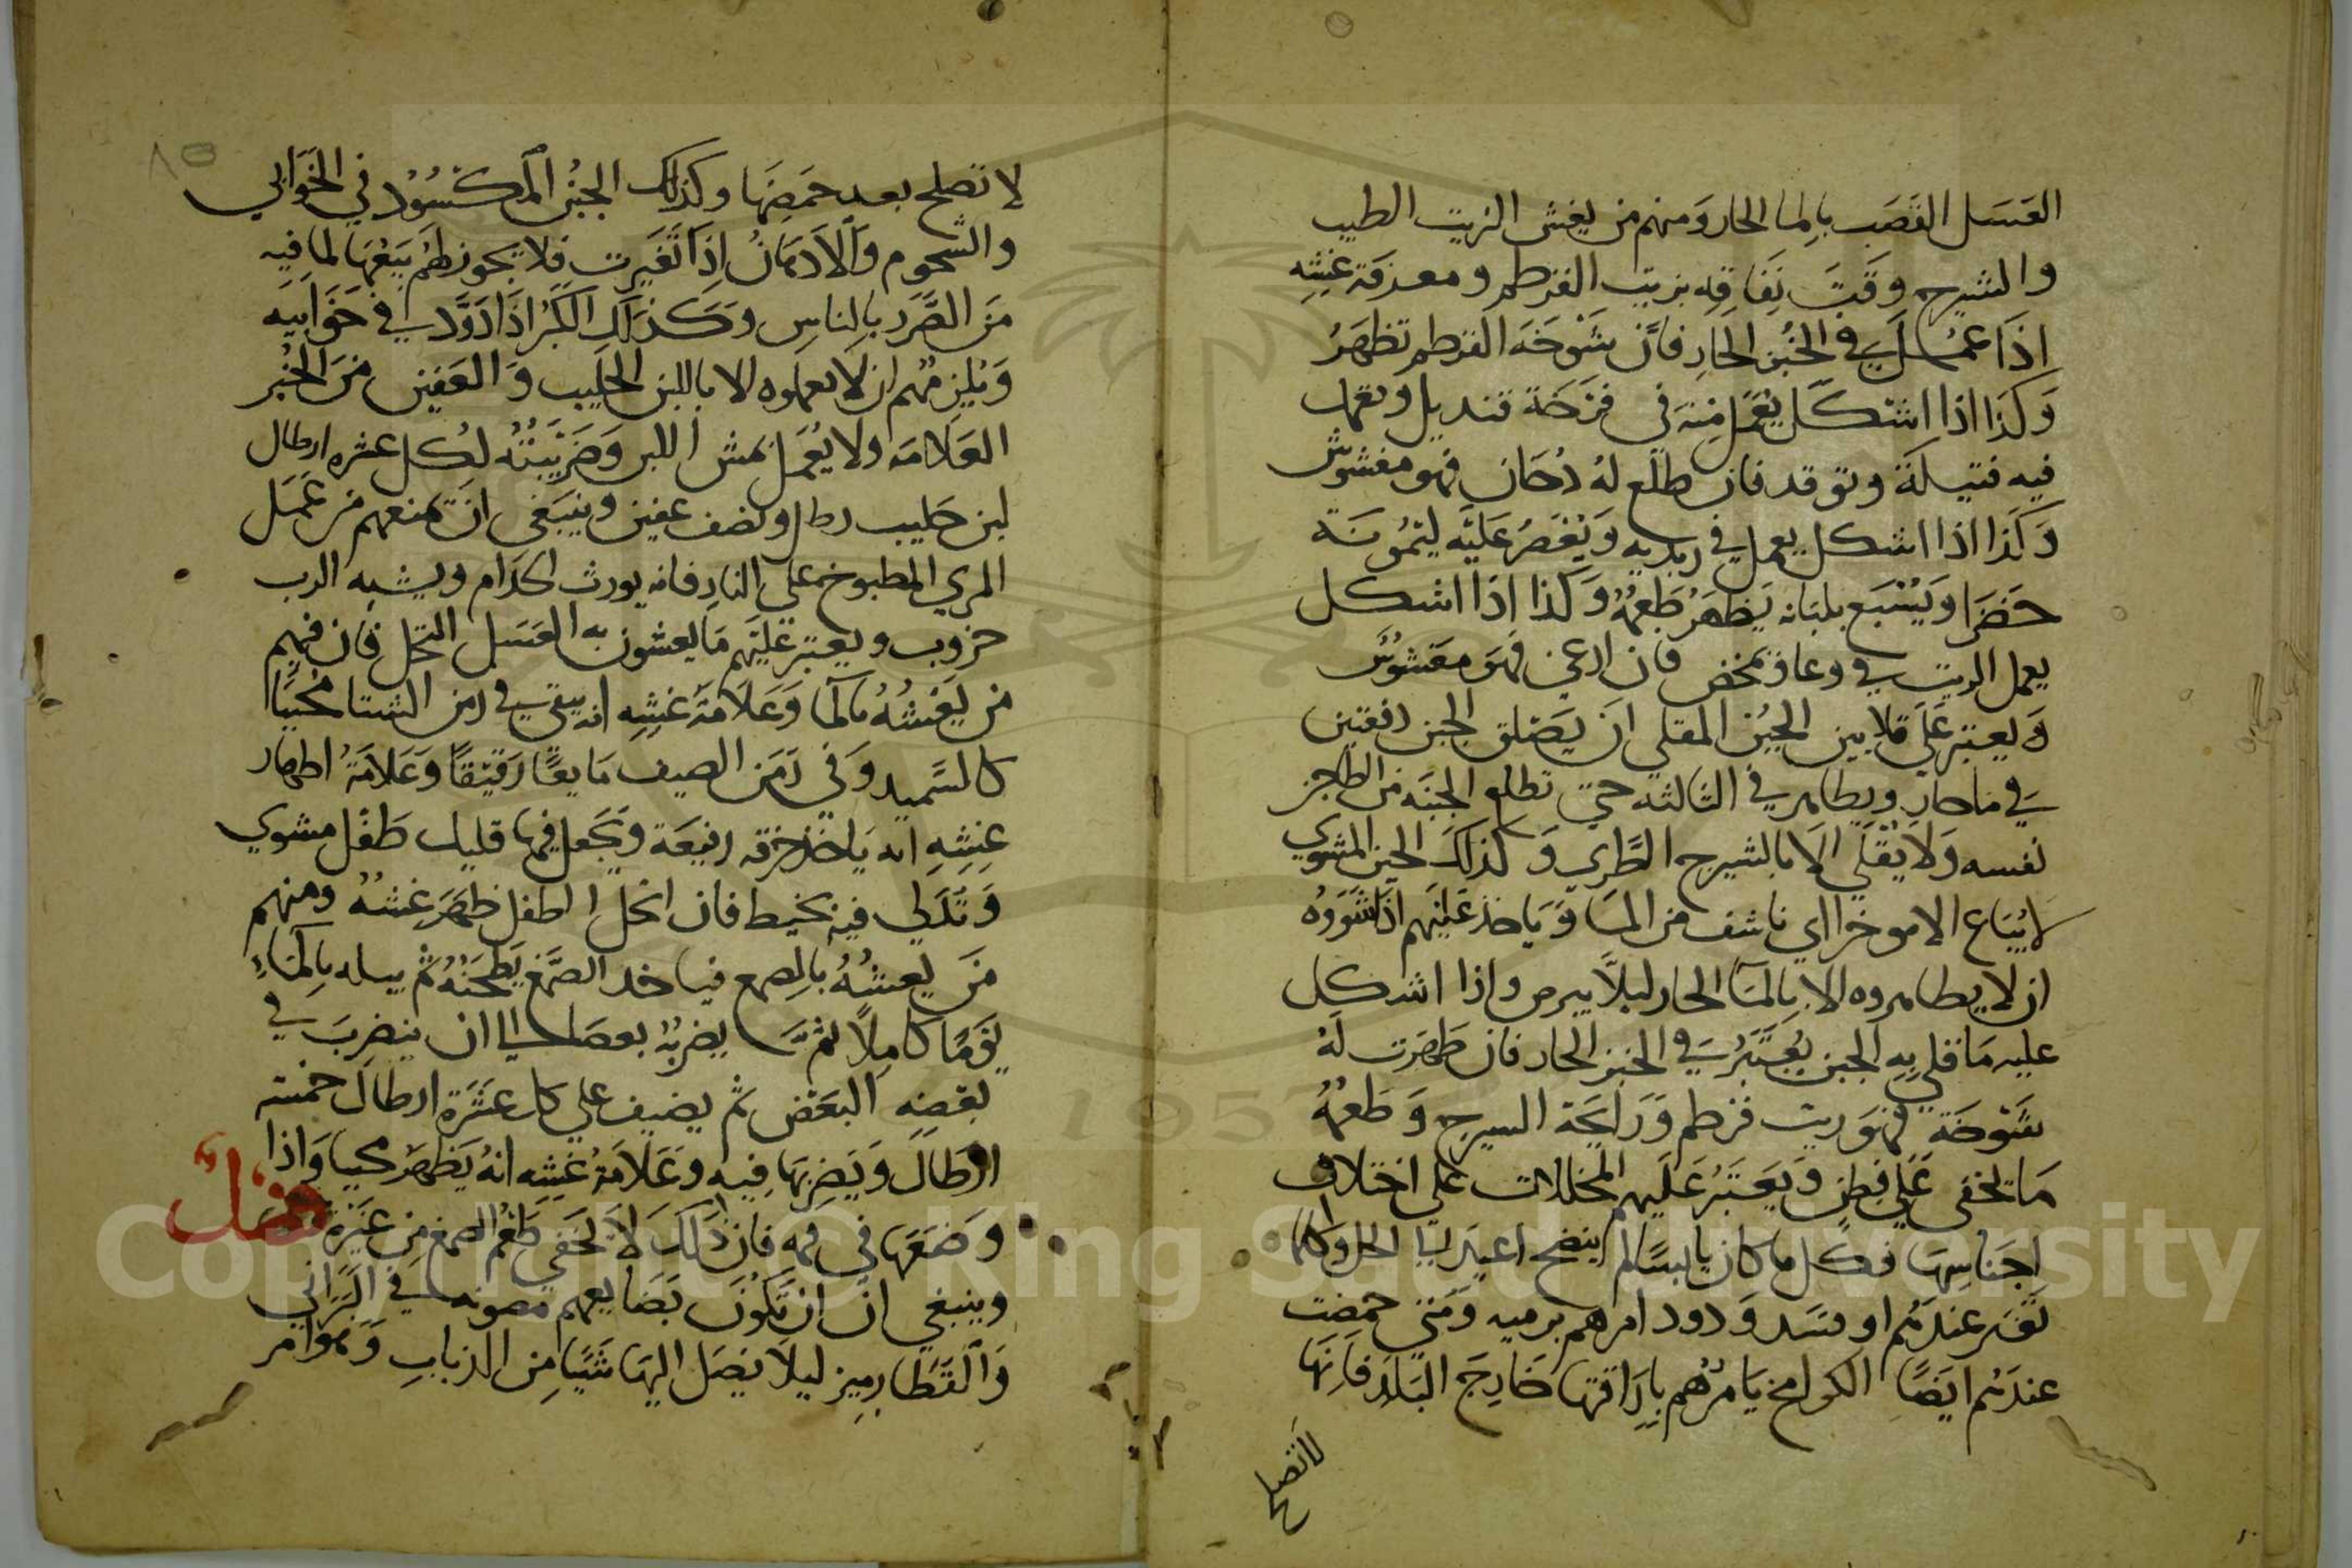 العسل القصب بالما الحار ومنهم من يغش الزيت الطيب
والشيرج وقت نفاقه بزيت القرطم ومعرفة غشه
اذا عمل في الخبز الحار فان شوخة القرطم تظهر
وكذا اذا اشتكل يعمل منه في فرخة قنديل ويعمل
فيه فتيلة وتوقد فان طلع له دخان فهو مغشوش
وكذا اذا اشكل يعمل في زبديه ويعصر عليه ليمونة
خضرا ويتبع بلبانه يظهر طعمه وكذا اذا اشكل
يعمل الزيت في وعا ويمخض فان ارغي فهو مغشوش
ويعتبر علي قلايين الجبن المقلي ان يصلق الجبن دفعتين
في ما حار ويطامر في الثالثه حتي تطلع الجبنه من الطاجز
نفسه ولا يقلي الا بالشيرج الطري وكذلك الجبن المشوي
لا يباع الا موخرا اي ناشف من الما وياخذ عليهم اذا شووه
ان لا يطامروه الا بالما الحار ليلا يبرص واذا اشكل
عليه ما قلي به الجبن يعتبر في الخبز الحار فان ظهرت له
شوخة فهو زيت قرطم ورايحة السيرج وطعمه
ما تخفي علي فطن ويعتبر عليهم المخللات علي اختلاف
اجناسها فكل ما كان يابسا لم ينضج اعيد الي الخل وكلما
تغير عندهم او فسد ودود امرهم برميه ومتي حمضت
عندهم ايضا الكوامخ يامرهم باراقتها خارج البلد فانها
لا تصلح
٨٥
لا تصلح بعد حمضها وكذلك الجبن المكسود في الخوابي
والشحوم والادهان اذا تغيرت فلا يجوز لهم بيعها لما فيه
من الضرر بالناس وكذلك الكبر اذا دود في خوابيه
ويلزمهم ان لا يعملوه الا باللبن الحليب والعفين من الخبز
العلامه ولا يعمل بمش اللبن وضريبته لكل عشره ارطال
لبن حليب رطل ونصف عفين وينبغي ان تمنعهم من عمل
المري المطبوخ علي النار فانه يورث الجذام ويشبه الرب
خروب ويعتبر عليهم ما يغشون به العسل النحل فان فيهم
من يغشه بالما وعلامة غشه انه يبقي في زمن الشتا محببا
كالسميد وفي زمن الصيف مايعا رقيقا وعلامة اظهار
غشه انه ياخذ خرقه رفيعة وتجعل فيها قليل طفل مشوي
وتدلي فيه بخيط فان انحل الطفل ظهر غشه ومنهم
من يغشه بالصمغ فياخد الصمغ يطحنه ثم يبله بالماء
يوما كاملا ثم يضربه بعصا الي ان ينضرب في
بعضه البعض ثم يضيف علي كل عشرة ارطال خمسة
ارطال ويضربها فيه وعلامة غشه انه يظهر محببا واذا
وضعها في فمه فان ذلك لا يخفي طعم الصمغ من غيره فصل
وينبغي ان ان تكون بضايعهم مصونه في البراني
والقطارميز ليلا يصل اليها شيا من الذباب وهوامر